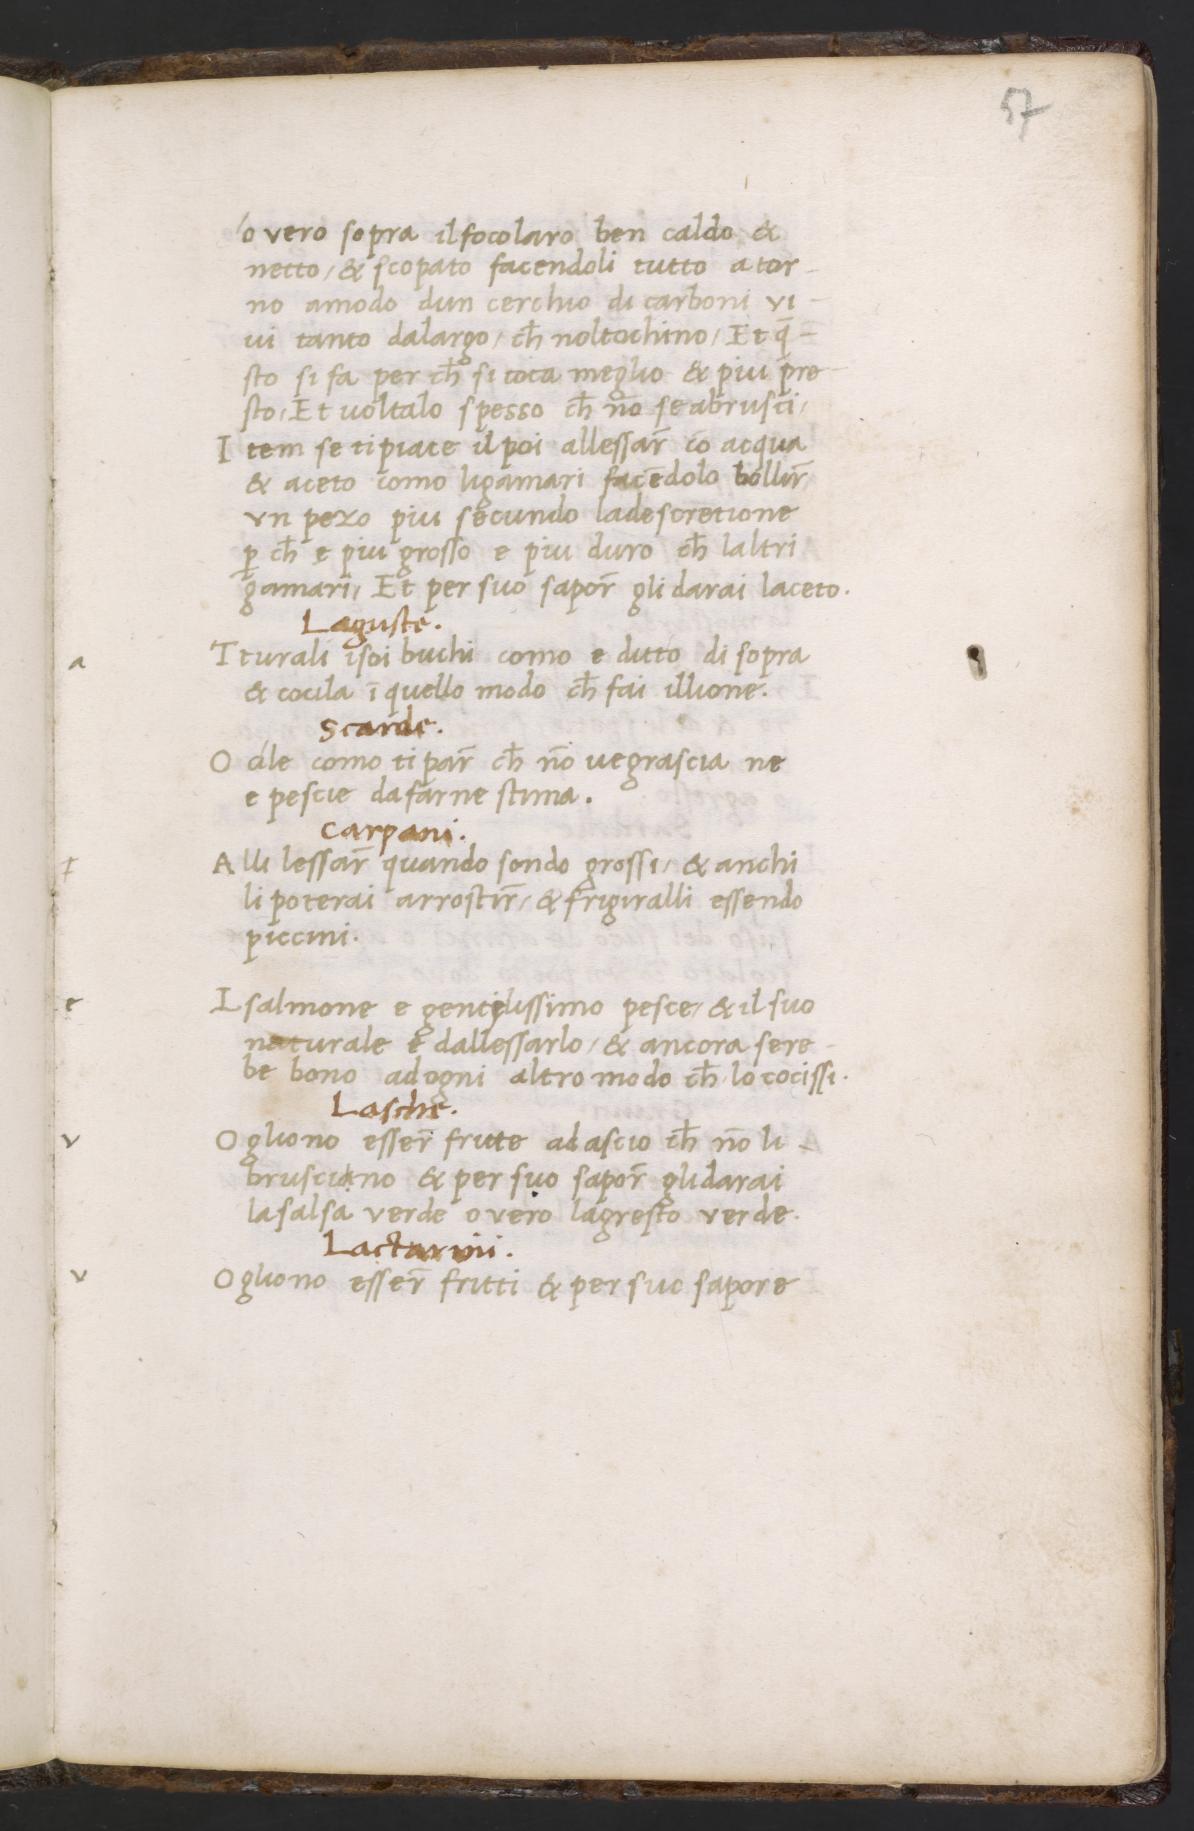 57
o vero sopra il focolaro ben caldo &
netto / & scopato facendoli tutto a tor-
no amodo dun cerchio di carboni vi-
ui tanto dalargo / ch̄ noltochino / Et q̄-
sto si fa per ch̄ si coca meglio & piu pre-
sto / Et uoltalo spesso ch̄ nō se abrusci /
I tem se ti piace il poi allessar̄ cō acqua
& aceto como ligamari facēdolo bollir̄
vn pezo piu secundo ladescretione
p̱ ch̄ e piu grosso e piu duro ch̄ laltri
gamari / Et per suo sapor̄ gli darai laceto.
Laguste.
a
T turali isoi buchi como e ditto di sopra
& cocila ī quello modo ch̄ fai illione.
Scarde.
O cile como ti par̄ ch̄ nō ue grascia ne
e pescie da farne stima.
Carpani.
A lli lessar̄ quando sondo grossi / & anchi
li poterai arrostir̄ / & frigiralli essendo
piccini.
e
IL salmone e gentilissimo pesce / & il suo
naturale e dallessarlo / & ancora sere-
be bono ad ogni altro modo ch̄ lo cocissi.
Lasche.
v
O gliono esser̄ fritte ad ascio ch̄ nō li-
brusciano & per suo sapor̄ gli darai
la salsa verde o vero lagresto verde.
Lactarini.
v
O gliono esser̄ fritti & per suo sapore